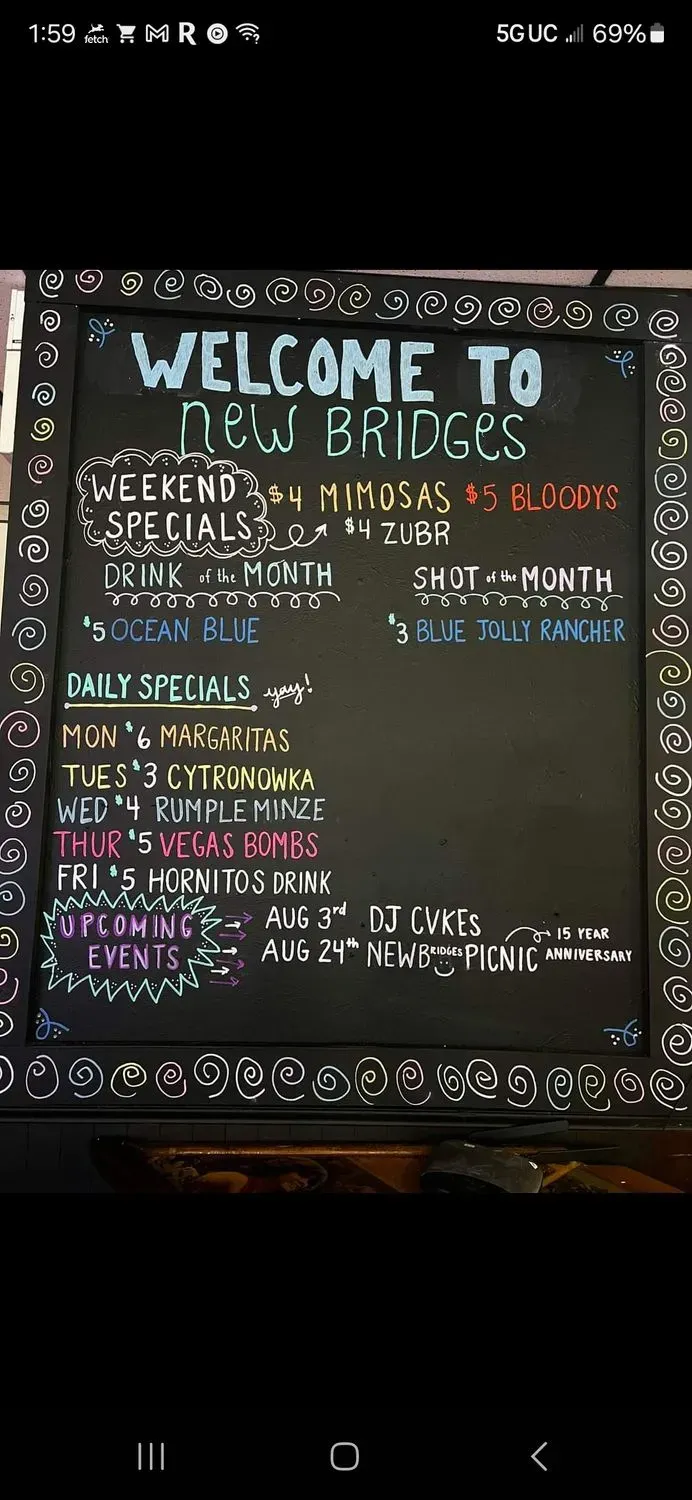 1:59 fetch 5G UC 69%
WELCOME TO
new BRIDGes
WEEKEND SPECIALS
$4 MIMOSAS $5 BLOODYS
$4 ZUBR
DRINK of the MONTH
$5 OCEAN BLUE
SHOT of the MONTH
$3 BLUE JOLLY RANCHER
DAILY SPECIALS yay!
MON $6 MARGARITAS
TUES $3 CYTRONOWKA
WED $4 RUMPLE MINZE
THUR $5 VEGAS BOMBS
FRI $5 HORNITOS DRINK
UPCOMING EVENTS
AUG 3rd DJ CVKES
AUG 24th NEWBRIDGES PICNIC
15 YEAR
ANNIVERSARY